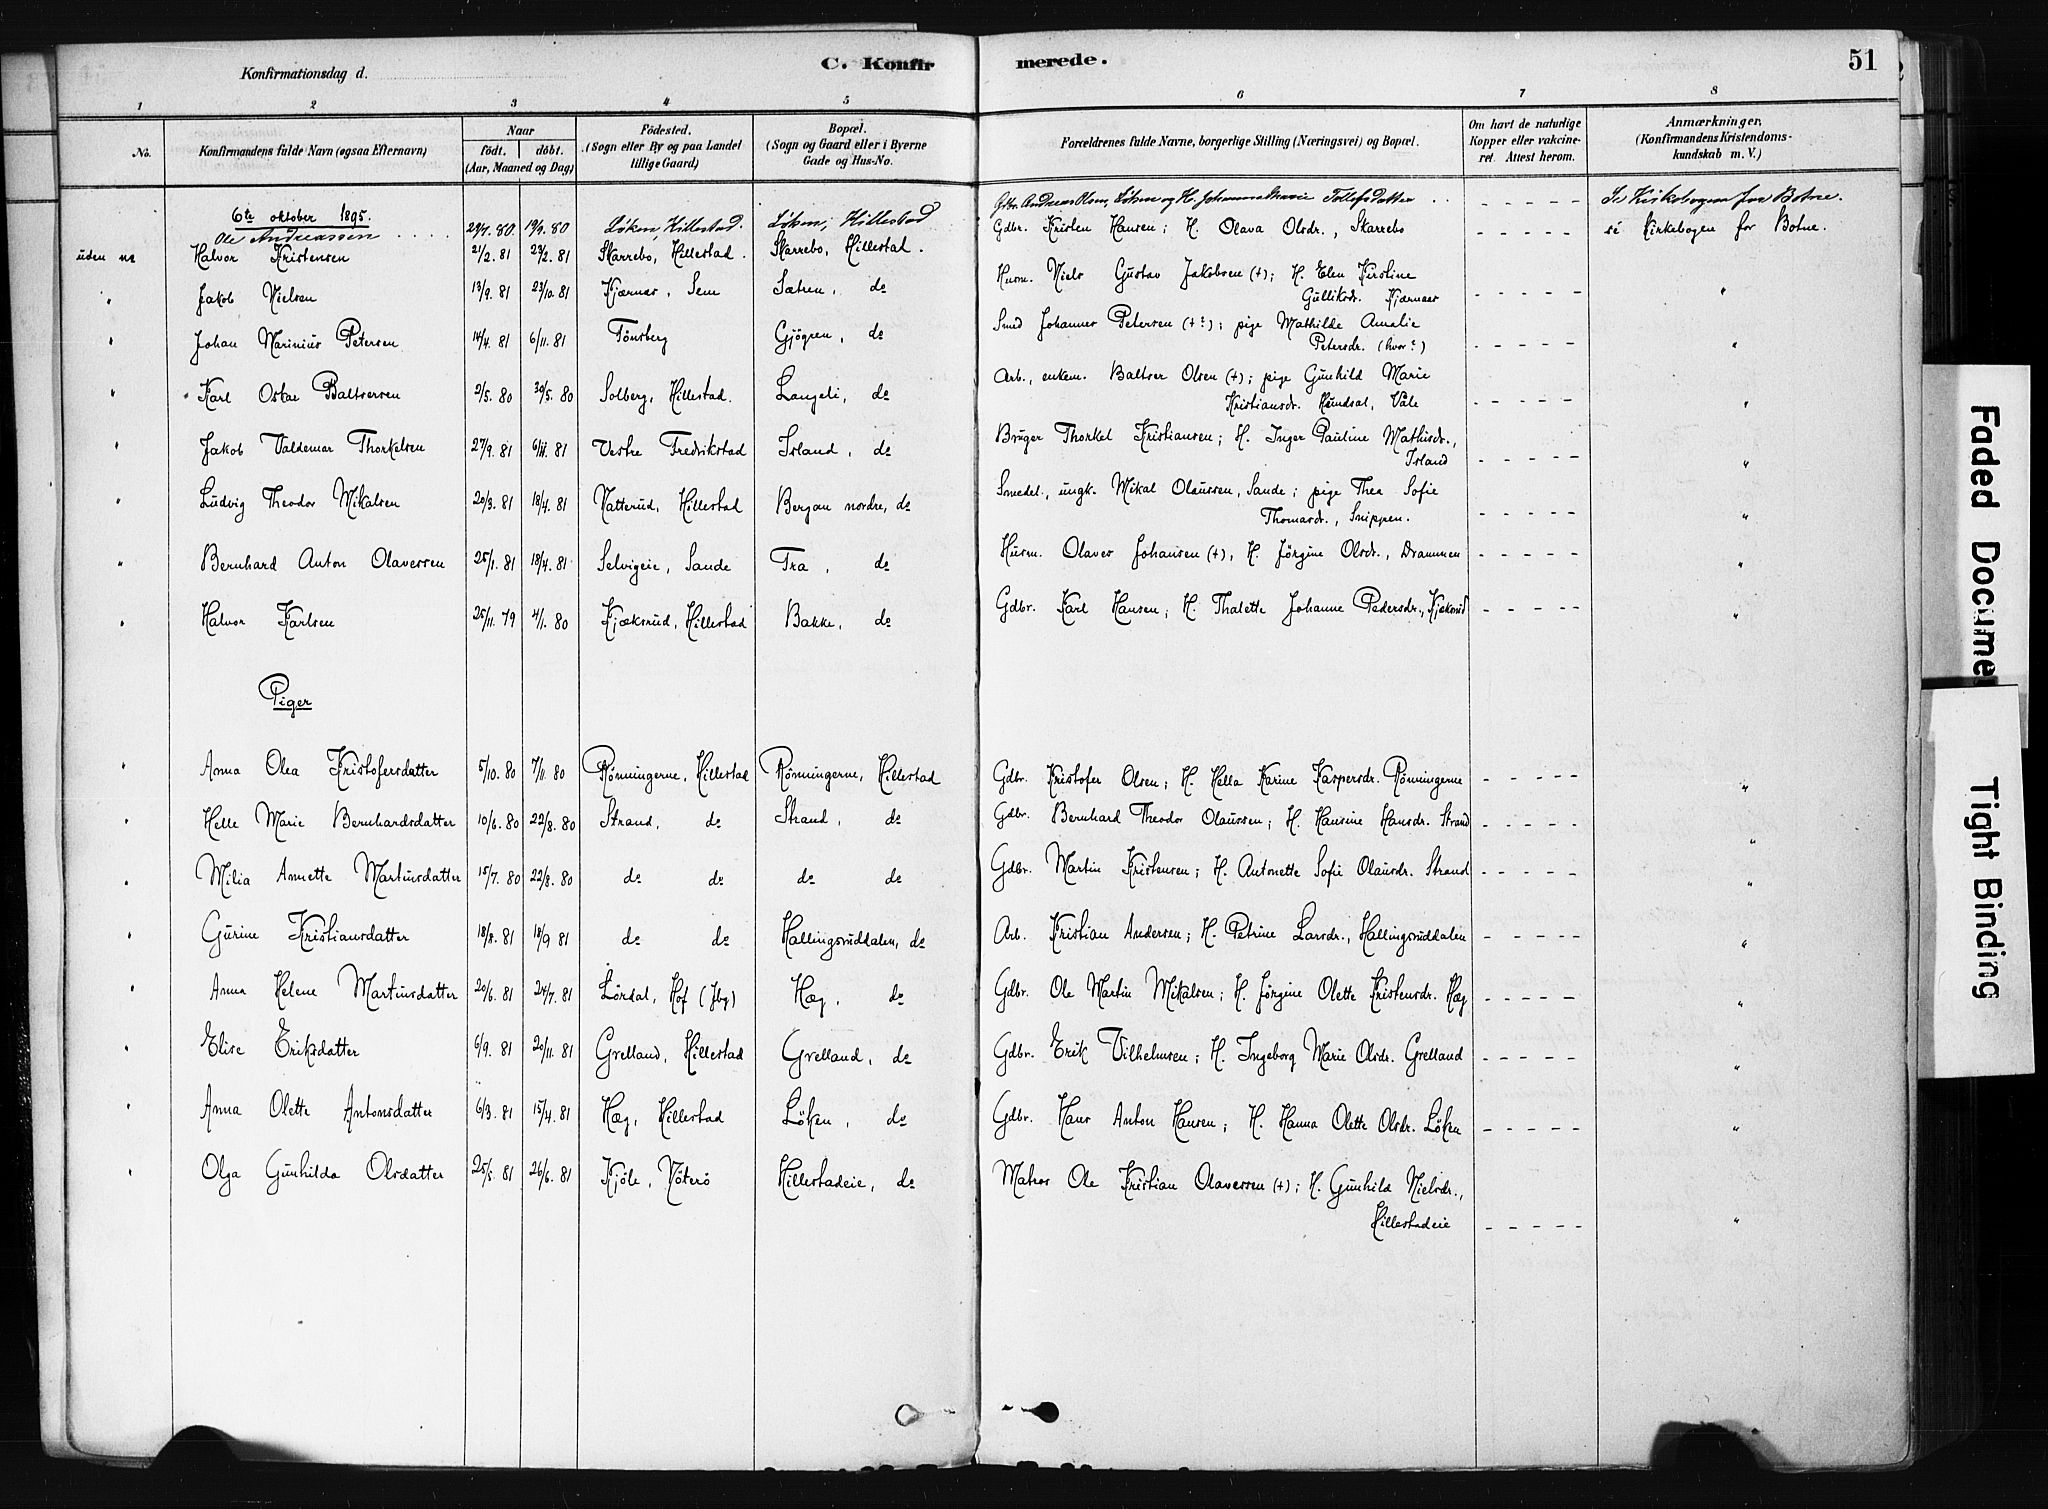 Konfirmationsdag d.
C. Konfirmerede.
51
1 2 3 4 5 6 7 8
No.
Konfirmandens fulde Navn (ogsaa Efternavn)
Naar
födt. döbt.
(Aar, Maaned og Dag)
Födested.
(Sogn eller By og paa Landet
tillige Gaard)
Bopæl.
(Sogn og Gaard eller i Byerne
Gade og Hus-No.
Forældrenes fulde Navne, borgerlige Stilling (Næringsvei) og Bopæl.
Om havt de naturlige
Kopper eller vakcine-
ret. Attest herom.
Anmærkninger.
(Konfirmandens Kristendoms-
kundskab m. V.)
6te oktober 1895.
Ole Andreassen . . . . 29/7. 80 19/9. 80 Löken, Hillestad. Löken, Hillestad Gdbr. Andreas Olsen, Löken og H. Johanne Marie Tollefsdatter . . - - - - - Se Kirkebogen for Botne.
uden no Halvor Kristensen 21/2. 81 27/2. 81 Skarrebo, Hillestad. Skarrebo, Hillestad. Gdbr. Kristen Hansen; H. Olava Olsdr., Skarrebo - - - - - se Kirkebogen for Botne.
" Jakob Nielsen 13/9. 81 23/10. 81 Kjærnæs, Sem Sætren, do Husm. Niels Gustav Jakobsen (+); H. Elen Kirstine
Gulliksdr. Kjærnaes - - - - - "
" Johan Marinius Petersen 14/4. 81 6/11. 81 Tönsberg Gjögren, do Smed Johannes Petersen (+?); pige Mathilde Amalie
Petersdr. (hvor?) - - - - - "
" Karl Oskar Baltsersen 2/5. 80 30/5. 80 Solberg, Hillestad. Langeli, do Arb., enkem. Baltser Olsen (+); pige Gunhild Marie
Kristiansdr. Hundsal, Våle - - - - - "
" Jakob Valdemar Thorkelsen 27/9. 81 6/11. 81 Vestre Fredrikstad Island, do Bruger Thorkel Kristiansen; H. Inger Pauline Mathisdr.,
Island - - - - - "
" Ludvig Theodor Mikalsen 20/3. 81 18/4. 81 Natterud, Hillestad Bergan nordre, do Smedel., ungk. Mikal Olaussen, Sande; pige Thea Sofie
Thomasdr., Snippen. - - - - - "
" Bernhard Anton Olavessen 25/1. 81 18/4. 81 Selvigeie, Sande Fra, do Husm. Olaves Johansen (+), H. Jörgine Olsdr., Drammen - - - - - "
" Halvor Karlsen 25/11. 79 4/1. 80 Kjæksrud, Hillestad Bakke, do Gdbr. Karl Hansen; H. Thalette Johanne Pedersdr., Kjæksrud - - - - - "
Piger
" Anna Olea Kristofersdatter 5/10. 80 7/11. 80 Rönningerne, Hillestad Rönningerne, Hillestad Gdbr. Kristofer Olsen; H. Hella Karine Kaspersdr. Rönningerne - - - - - "
" Helle Marie Bernhardsdatter 10/6. 80 22/8. 80 Strand, do Strand, do Gdbr. Bernhard Theodor Olaussen; H. Hansine Hansdr. Strand - - - - - "
" Milia Annette Martinsdatter 15/7. 80 22/8. 80 do do do do Gdbr. Martin Kristensen; H. Antonette Sofie Olausdr. Strand - - - - - "
" Gurine Kristiansdatter 18/8. 81 18/9 81 do do Hallingsruddalen, do Arb. Kristian Andersen; H. Petrine Larsdr., Hallingsruddalen - - - - - "
" Anna Helene Martinsdatter 20/6. 81 24/7. 81 Lördal, Hof (Jbg) Hæg, do Gdbr. Ole Martin Mikalsen; H. Jörgine Olette Kristensdr. Hæg - - - - - "
" Elise Eriksdatter 6/9. 81 20/11. 81 Grelland, Hillestad Grelland, do Gdbr. Erik Vilhelmsen; H. Ingeborg Marie Olsdr. Grelland - - - - - "
" Anna Olette Antonsdatter 6/3. 81 15/4. 81 Hæg, Hillestad Löken, do Gdbr. Hans Anton Hansen; H. Hanna Olette Olsdr. Löken - - - - - "
" Olga Gunhilda Olsdatter 25/5. 81 26/6. 81 Kjöle, Nöterö Hillestadeie, do Matros Ole Kristian Olavessen (+); H. Gunhild Nielsdr.,
Hillestadeie - - - - - "
Faded Docume
Tight Binding